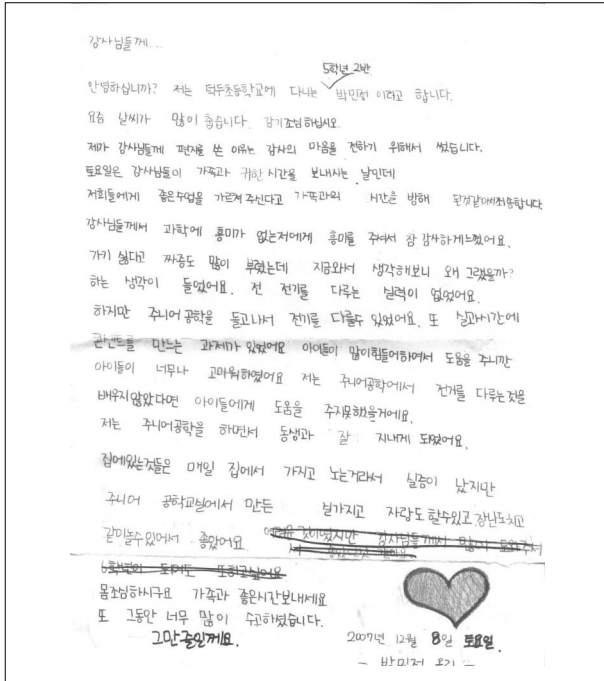 강사님들께...
5학년 2반
안녕하십니까? 저는 덕두초등학교에 다니는 박민정 이라고 합니다.
요즘 날씨가 많이 춥습니다. 감기조심하십시오.
제가 강사님들께 편지를 쓴 이유는 감사의 마음을 전하기 위해서 썼습니다.
토요일은 강사님들이 가족과 귀한 시간을 보내시는 날인데
저희들에게 좋은수업을 가르쳐 주신다고 가족과의 시간을 방해 된것같아서죄송합니다
강사님들께서 과학에 흥미가 없는저에게 흥미를 주셔서 참 감사하게느꼈어요.
가기 싫다고 짜증도 많이 부렸는데 지금와서 생각해보니 왜 그랬을까?
하는 생각이 들었어요. 전 전기를 다루는 실력이 없었어요.
하지만 주니어 공학을 듣고나서 전기를 다룰수 있었어요. 또 실과시간에
콘센트를 만드는 과제가 있었어요 아이들이 많이힘들어하여서 도움을 주니깐
아이들이 너무나 고마워하였어요 저는 주니어공학에서 전기를 다루는것을
배우지않았다면 아이들에게 도움을 주지못했을거에요.
저는 주니어공학을 하면서 동생과 잘 지내게 되었어요.
집에있는것들은 매일 집에서 가지고 노는거라서 실증이 났지만
주니어 공학교실에서 만든 가지고 자랑도 할수있고 장난도치고
같이놀수있어서 좋았어요. 강사님들께서 많이
6학년이 되어도 또하고싶어요
몸조심하시구요 가족과 좋은시간보내세요
또 그동안 너무 많이 수고하셨습니다.
그만줄인께요. 2007년 12월 8일 토요일.
- 박민정 올림 -